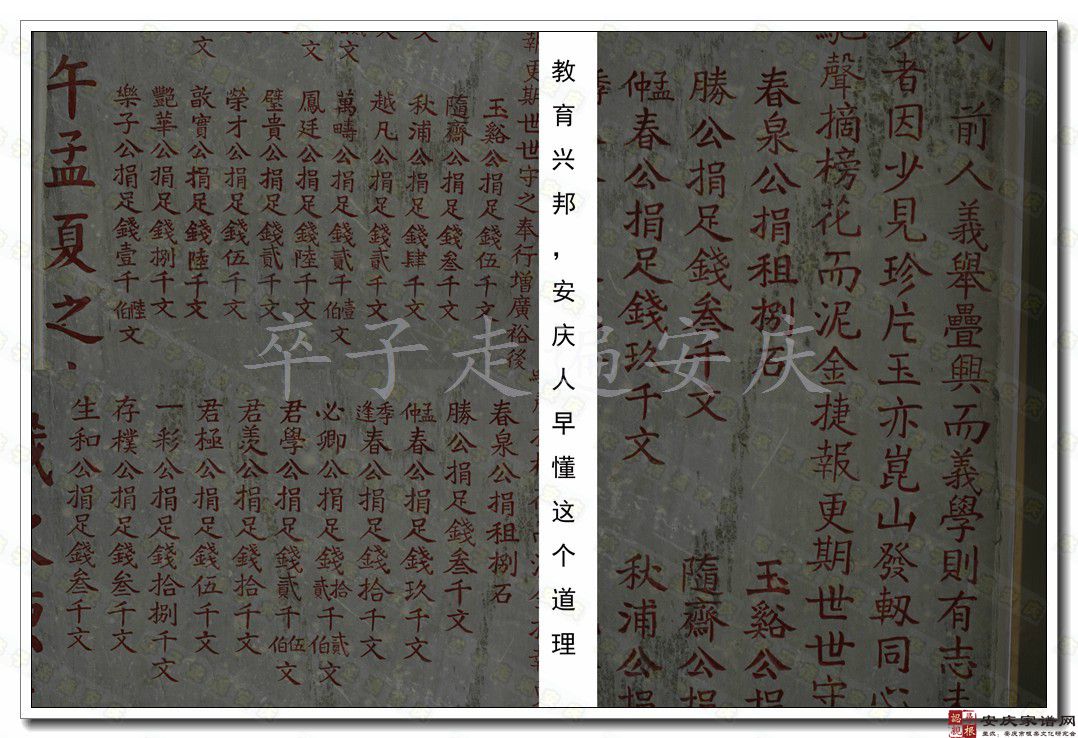 教育兴邦，安庆人早懂这个道理
前人義舉疊興而義學則有志
者因少見珍片玉亦崑山發軔同
聲摘榜花而泥金捷報更期世世守
春泉公捐租捌石
玉谿公捐
勝公捐足錢叁千文
隨齋公捐
春公捐足錢玖千文
秋浦公捐
更期世世守之奉行增廣裕後
玉谿公捐足錢伍千文
隨齋公捐足錢叁千文
秋浦公捐足錢肆千文
越凡公捐足錢貳千文
萬疇公捐足錢貳千壹伯文
鳳廷公捐足錢陸千文
璧貴公捐足錢貳千文
榮才公捐足錢伍千文
歆寶公捐足錢陸千文
艷華公捐足錢捌千文
樂子公捐足錢壹千陸伯文
午孟夏之
春泉公捐租捌石
勝公捐足錢叁千文
春公捐足錢玖千文
逢春公捐足錢拾千文
必卿公捐足錢拾貳千貳伯文
君學公捐足錢貳千伍伯文
君羨公捐足錢拾千文
君極公捐足錢伍千文
一彩公捐足錢拾捌千文
存樸公捐足錢叁千文
生和公捐足錢叁千文
卒子走遍安庆
安庆家谱网